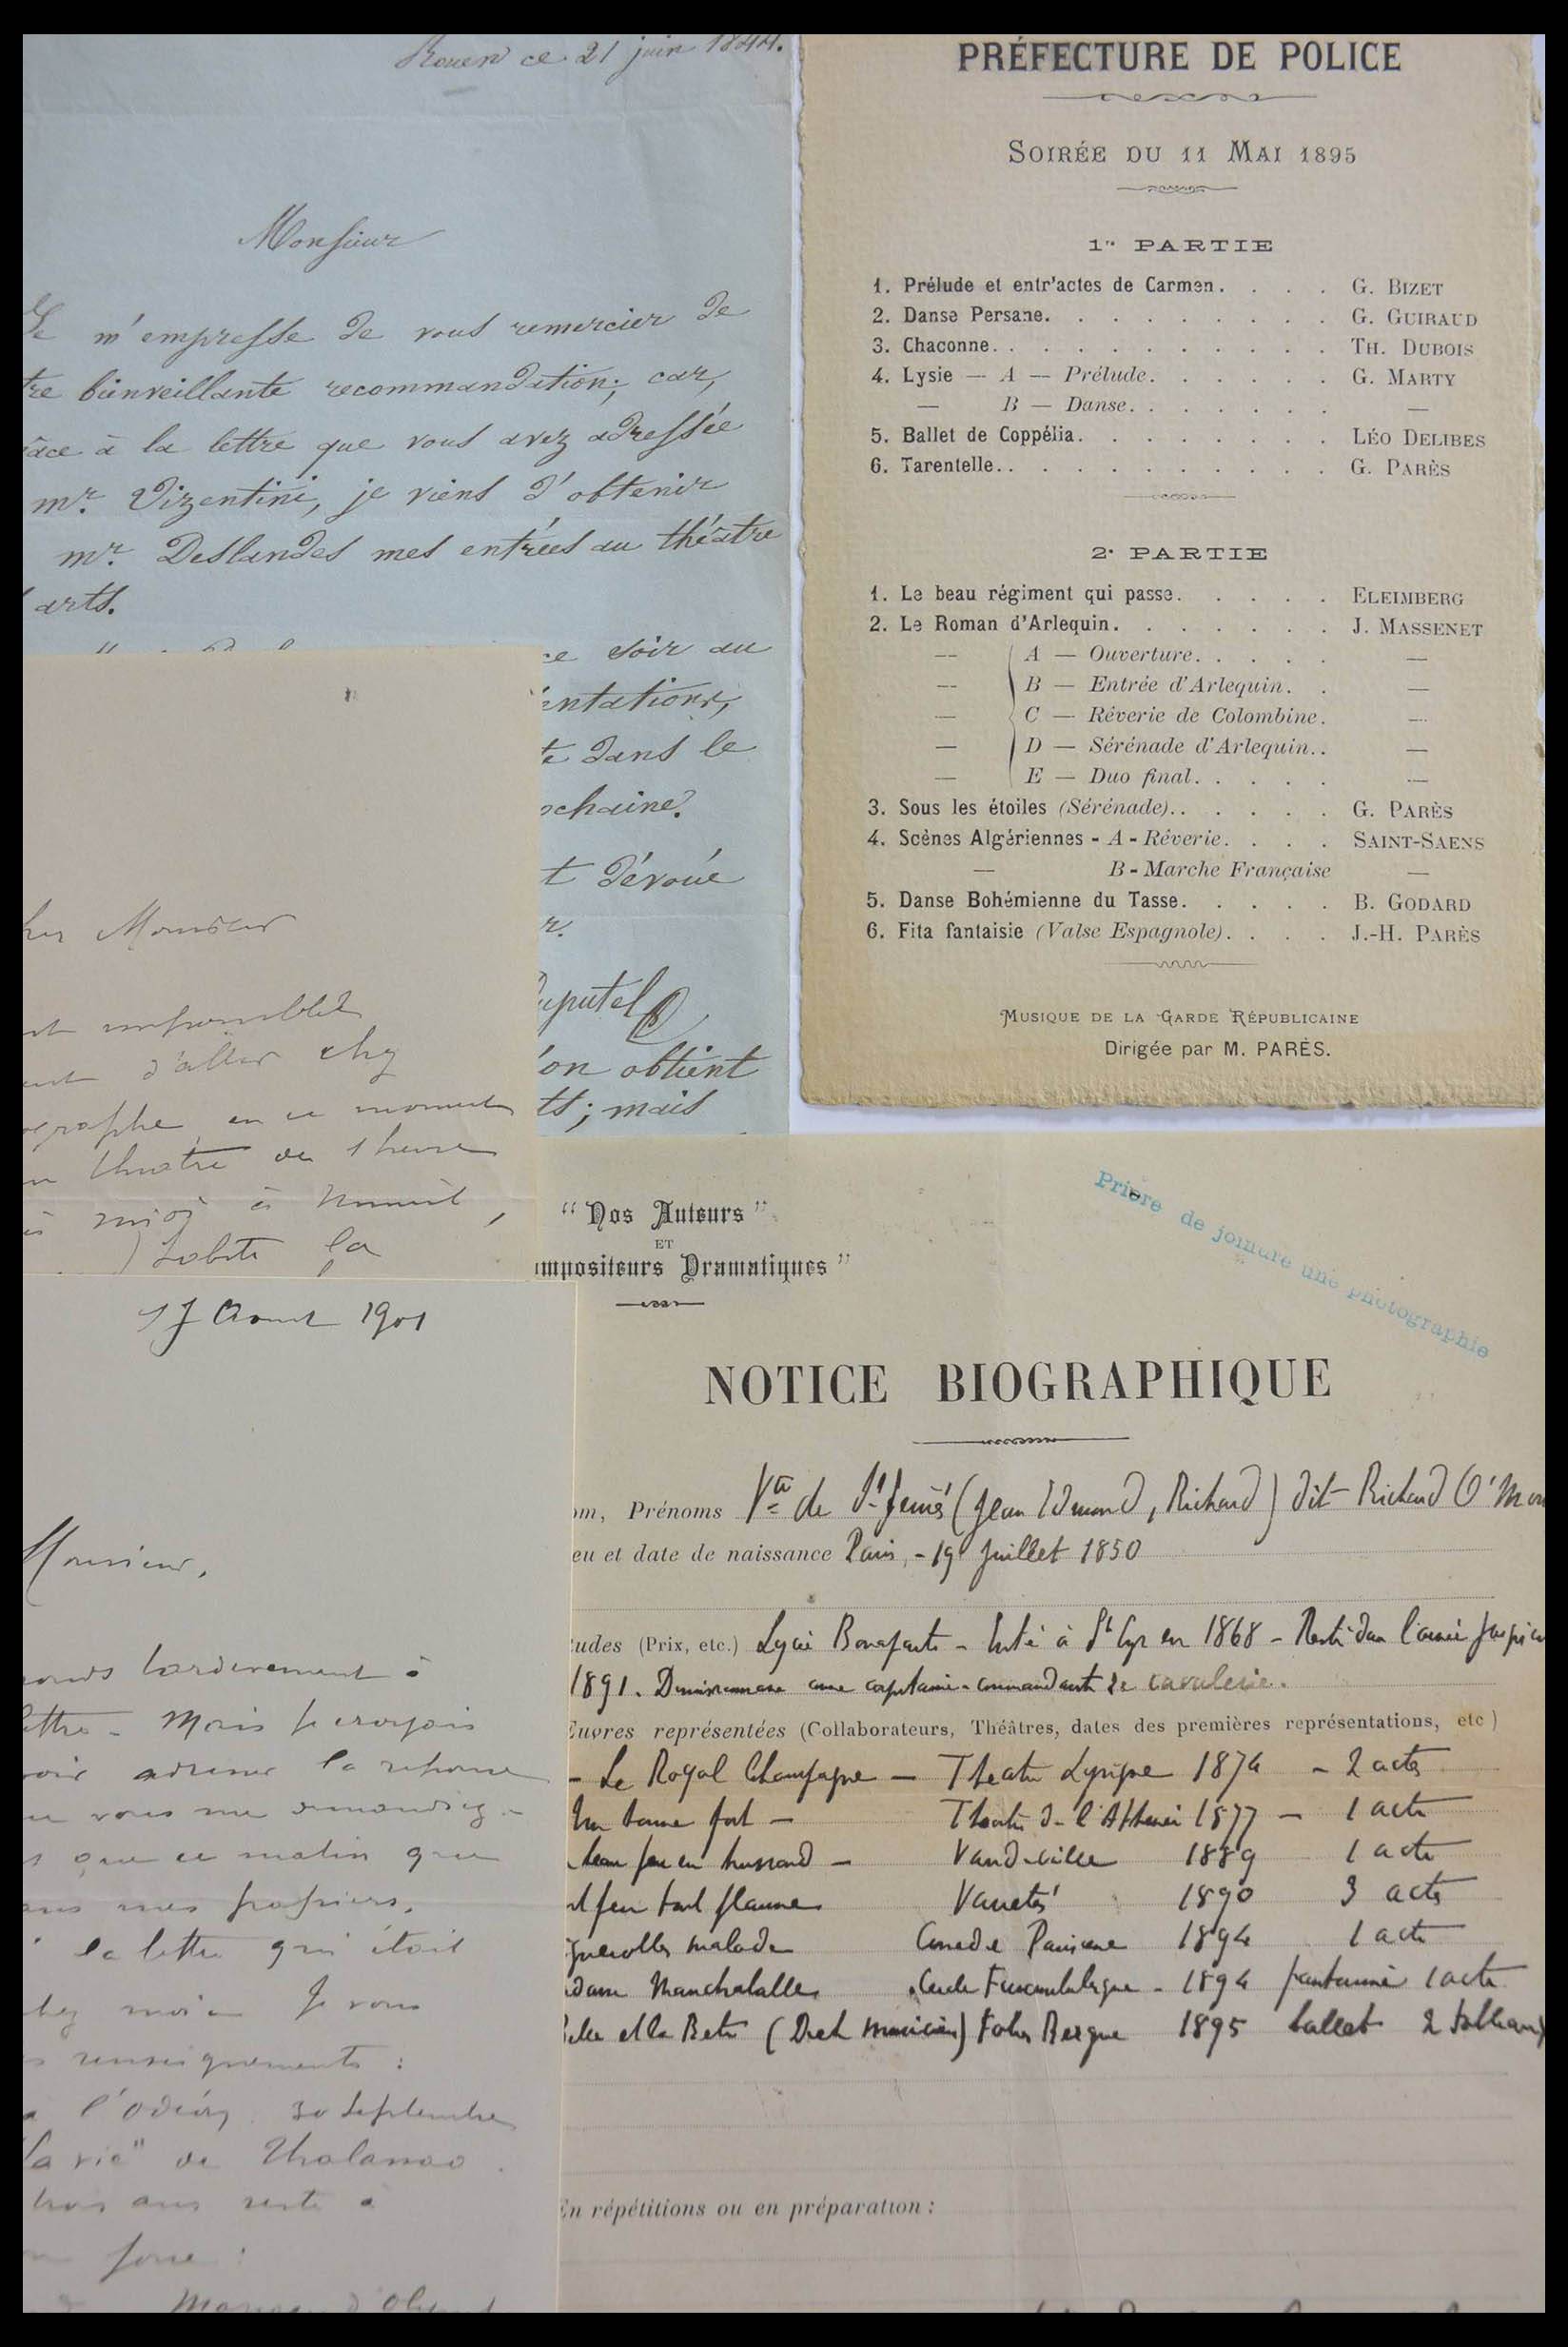 Rouen ce 21 juin 1844.
Monsieur
Je m'empresse de vous remercier de
tre bienveillante recommandation; car,
âce à la lettre que vous avez adressée
mr. Vizentini, je viens d'obtenir
mr. Deslandes mes entrées au théâtre
arts.
ce soir au
entations,
te dans le
ochaine.
t dévoué
r.
uputel
'on obtient
ts; mais
PRÉFECTURE DE POLICE
SOIRÉE DU 11 MAI 1895
1re PARTIE
1. Prélude et entr'actes de Carmen. . . . . G. BIZET
2. Danse Persane. . . . . . . . . G. GUIRAUD
3. Chaconne. . . . . . . . . . . TH. DUBOIS
4. Lysie — A — Prélude. . . . . . G. MARTY
— B — Danse. . . . . . . —
5. Ballet de Coppélia. . . . . . . . LÉO DELIBES
6. Tarentelle. . . . . . . . . . . G. PARÈS
2e PARTIE
1. Le beau régiment qui passe. . . . . . ELEIMBERG
2. Le Roman d'Arlequin. . . . . . . . J. MASSENET
— A — Ouverture. . . . . —
— B — Entrée d'Arlequin. . —
— C — Rêverie de Colombine. —
— D — Sérénade d'Arlequin. . —
— E — Duo final. . . . . —
3. Sous les étoiles (Sérénade). . . . . . G. PARÈS
4. Scènes Algériennes - A - Rêverie. . . . SAINT-SAENS
— B - Marche Française —
5. Danse Bohémienne du Tasse. . . . . B. GODARD
6. Fita fantaisie (Valse Espagnole). . . . J.-H. PARÈS
MUSIQUE DE LA GARDE RÉPUBLICAINE
Dirigée par M. PARÈS.
her Monsieur
impossible
d'aller chez
ographe en ce moment
théatre de 1 heure
midi à minuit,
la
17 Aout 1901
Monsieur,
onds tardivement à
ettre - Mais je croyais
voir adresser la reponse
ue vous me demandiez -
s que ce matin que
ans mes papiers,
la lettre qui était
chez moi - Je vous
s renseignements :
l'Odéon, 30 septembre
la vie" de Thalasso.
trois ans reste à
"Nos Auteurs"
ET
mpositeurs Dramatiques"
Prière de joindre une photographie
NOTICE BIOGRAPHIQUE
om, Prénoms Vte de St Geniès (Jean Edmond, Richard) dit Richard O'Mon
eu et date de naissance Paris, - 19 Juillet 1850
udes (Prix, etc.) Lycée Bonaparte - Entré à St Cyr en 1868 - Resté dans l'armée jusqu'en
1891. Démissionnaire comme capitaine-commandant de cavalerie.
Euvres représentées (Collaborateurs, Théâtres, dates des premières représentations, etc)
- Le Royal Champagne - Theatre Lyrique 1874 - 2 actes
Théatre de l'Athénée 1877 - 1 acte
Vaudeville 1889 1 acte
t feu tout flamme Variétés 1890 3 actes
malade Comédie Parisienne 1894 1 acte
dame Manchaballe Cercle Funambulesque - 1894 pantomime 1 acte
elle et la Bete (Diet musicien) Folies Bergère 1895 ballet 2 tableaux
En répétitions ou en préparation :